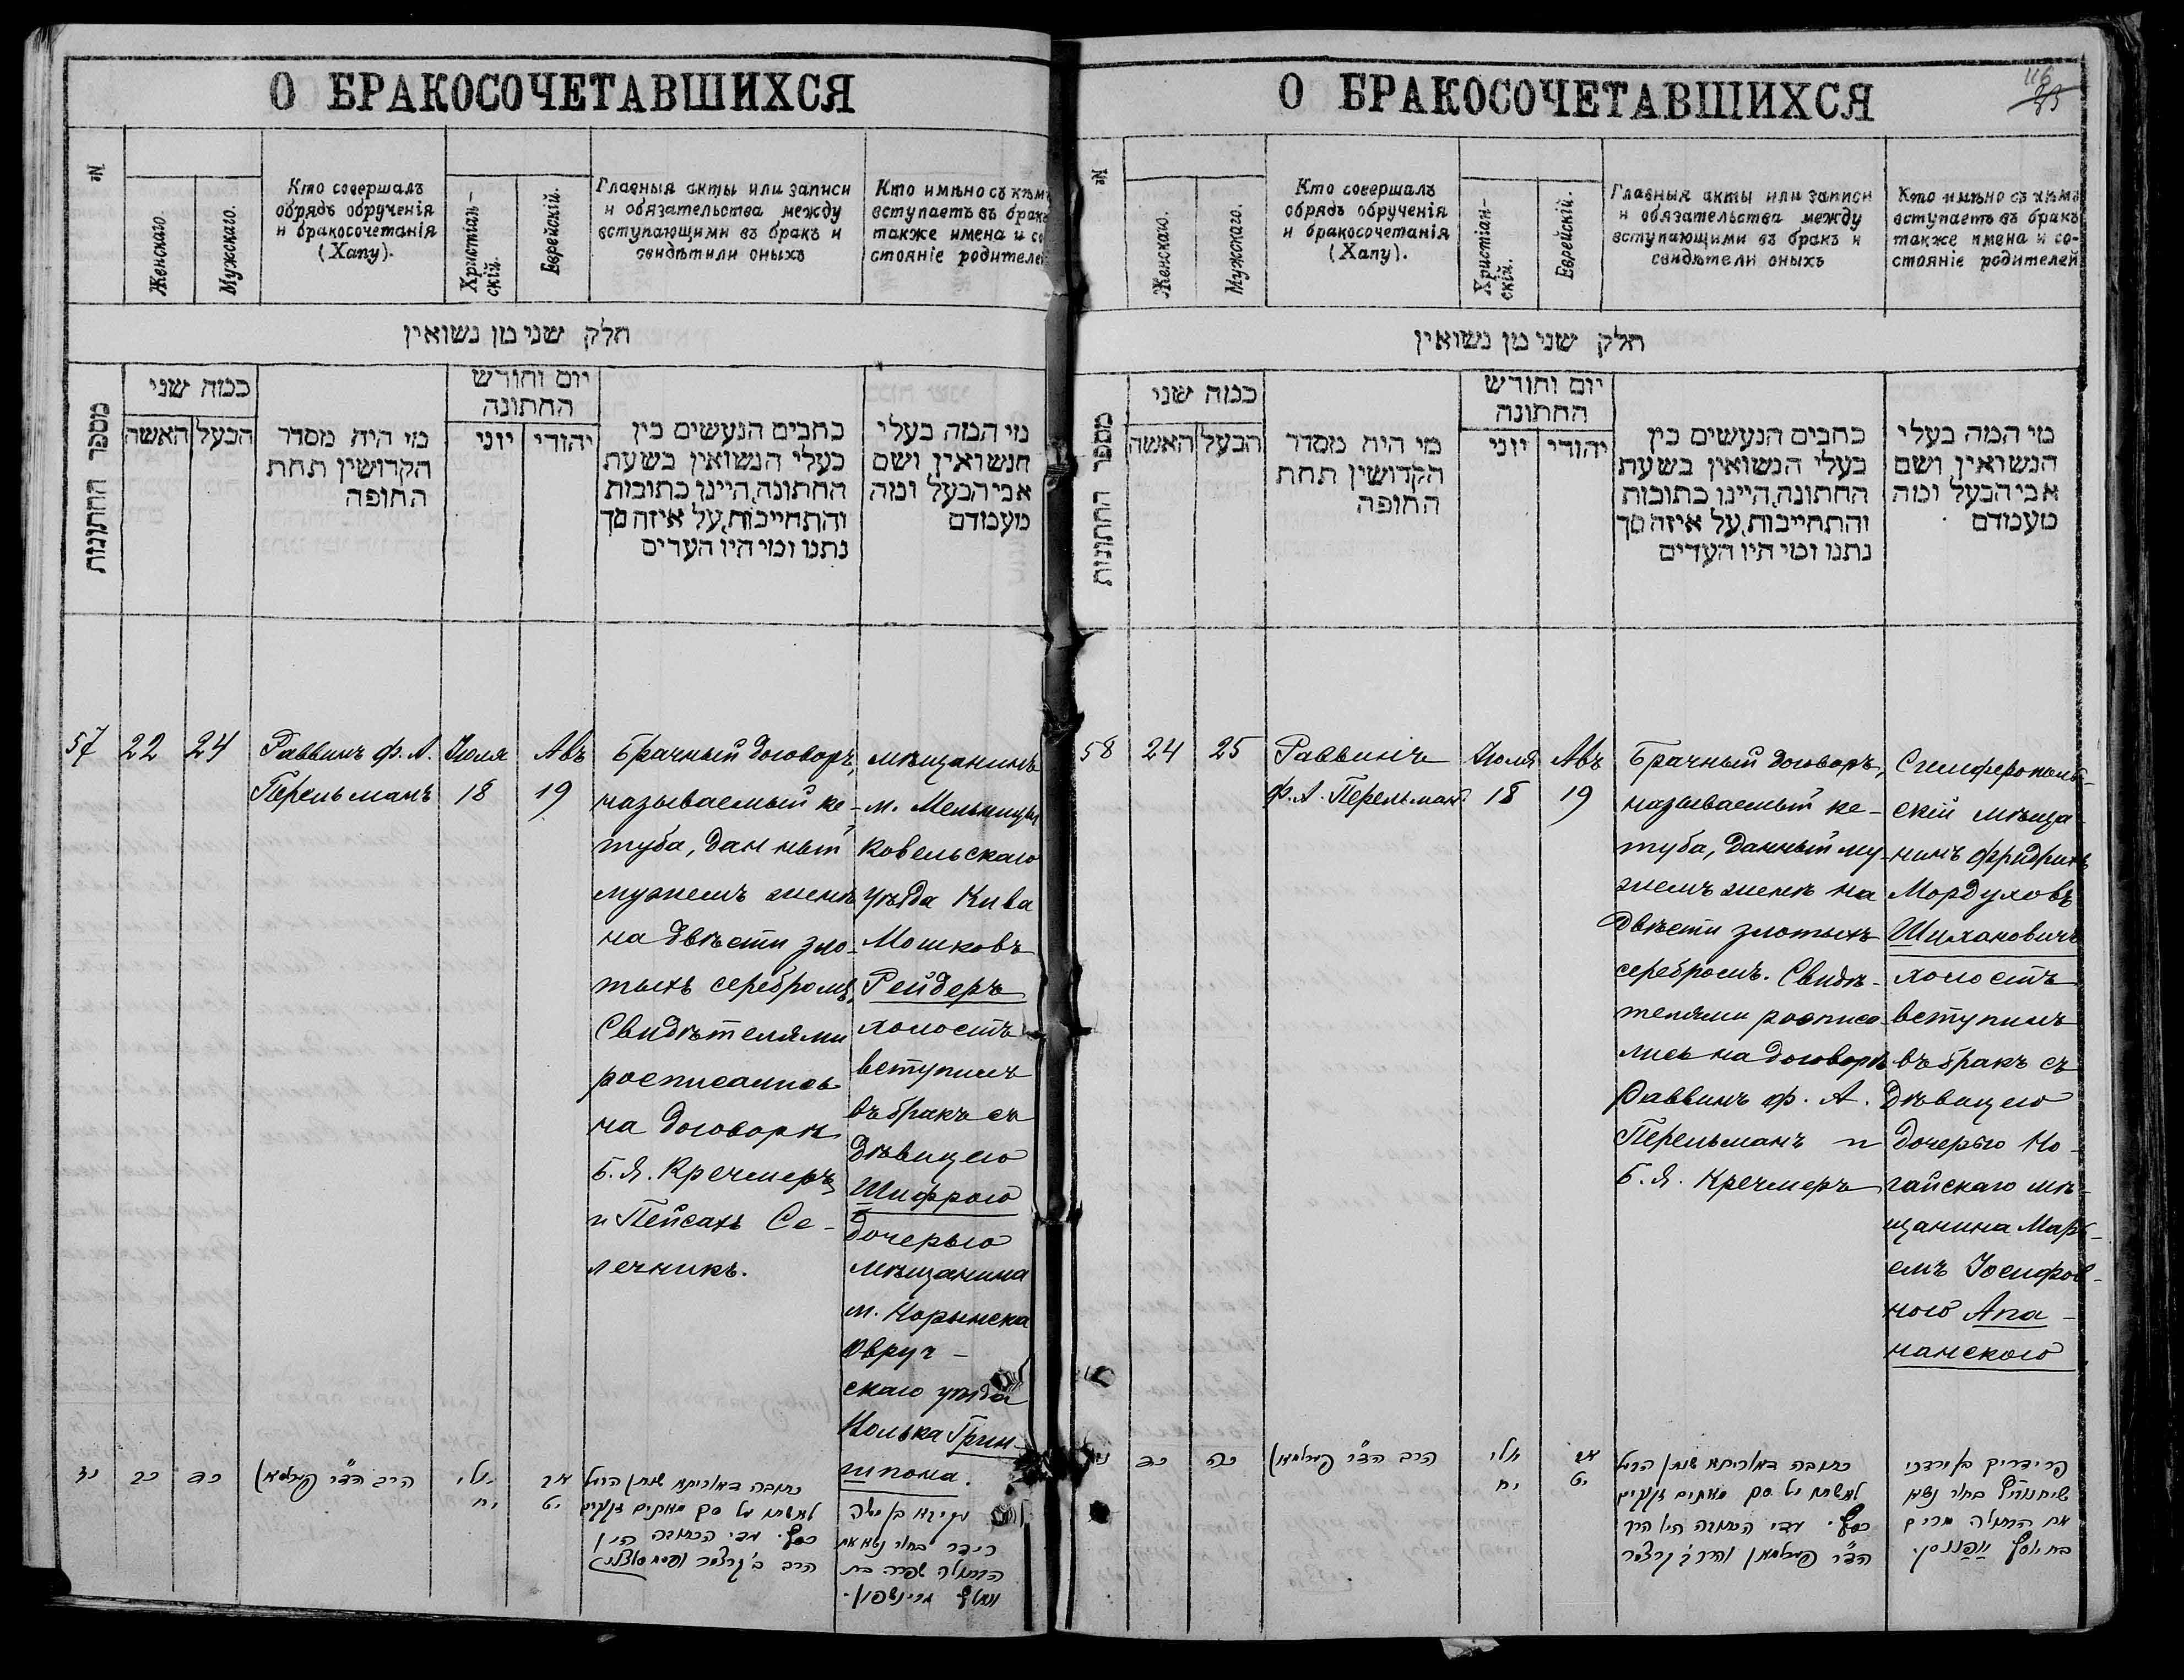 О БРАКОСОЧЕТАВШИХСЯ
№
Женскаго.
Мужскаго.
Кто совершалъ
обрядъ обрученія
и бракосочетанія
(Хапу).
Христіан-
скій.
Еврейскій.
Главныя акты или записи
и обязательства между
вступающими въ бракъ и
свидѣтили оныхъ
Кто имѣно съ кѣмъ
вступаетъ въ бракъ
также имена и со
стояніе родителей
חלק שני מן נשואין
מספר החתונות
כמה שני
האשה
הבעל
מי היה מסדר
הקדושין תחת
החופה
יום וחודש
החתונה
יוני
יהודי
כתבים הנעשים בין
בעלי הנשואין בשעת
החתונה, היינו כתובות
והתחייבות, על איזה סך
נתנו ומי היו העדים
מי המה בעלי
הנשואין ושם
אבי הבעל ומה
מעמדם
57
22
24
Раввинъ Ф. А.
Перельманъ
Іюля
18
Авъ
19
Брачный договоръ,
называемый ке-
туба, данный
мужемъ женѣ
на двѣсти зло-
тыхъ серебромъ.
Свидѣтелями
росписались
на договорѣ
Б. Я. Кречмеръ
и Пейсахъ Се-
лечникъ.
мѣщанинъ
м. Мельницы
Ковельскаго
уѣзда Кива
Мошковъ
Рейдеръ
холостъ
вступилъ
въ бракъ съ
дѣвицею
Шифрою
дочерью
мѣщанина
м. Норынска
Овруч-
скаго уѣзда
Ионька Грин-
шпона.
נז
כב
כד
הרב הד״ר פערלמאן
יולי
יח
אב
יט
כתובה דאורייתא שנתן הבעל
לאשתו על סך מאתים זקוקים
כסף. עדי הכתובה היו
הרב
עקיבא בן משה
רידר בחור נשא את
הבתולה שפרה בת
גרינשפון.
О БРАКОСОЧЕТАВШИХСЯ
116
№
Женскаго.
Мужскаго.
Кто совершалъ
обрядъ обрученія
и бракосочетанія
(Хапу).
Христіан-
скій.
Еврейскій.
Главныя акты или записи
и обязательства между
вступающими въ бракъ и
свидѣтели оныхъ
Кто имѣно съ кѣмъ
вступаетъ въ бракъ
также имена и со-
стояніе родителей
חלק שני מן נשואין
מספר החתונות
כמה שני
האשה
הבעל
מי היה מסדר
הקדושין תחת
החופה
יום וחודש
החתונה
יוני
יהודי
כתבים הנעשים בין
בעלי הנשואין בשעת
החתונה, היינו כתובות
והתחייבות, על איזה סך
נתנו ומי היו העדים
מי המה בעלי
הנשואין ושם
אבי הבעל ומה
מעמדם
58
24
25
Раввинъ
Ф. А. Перельман.
Іюля
18
Авъ
19
Брачный договоръ,
называемый ке-
туба, данный му-
жемъ женѣ на
двѣсти злотыхъ
серебромъ. Свидѣ-
телями росписа-
лись на договорѣ
Раввинъ Ф. А.
Перельманъ и
Б. Я. Кречмеръ
Симферополь-
скій мѣща-
нинъ Фридрихъ
Мордуховъ
Шихановичъ
холостъ
вступилъ
въ бракъ съ
дѣвицею
дочерью Но-
гайскаго мѣ-
щанина Марь-
емъ Іосифов-
ною Апа-
нанскою
כד
כה
הרב הד״ר פערלמאן
יולי
יח
אב
יט
כתובה דאורייתא שנתן הבעל
לאשתו על סך מאתים זקוקים
כסף. עדי הכתובה היו הרב
הד״ר פערלמאן
פרידריך בן מרדכי
בחור נשא
את הבתולה מרים
בת יוסף